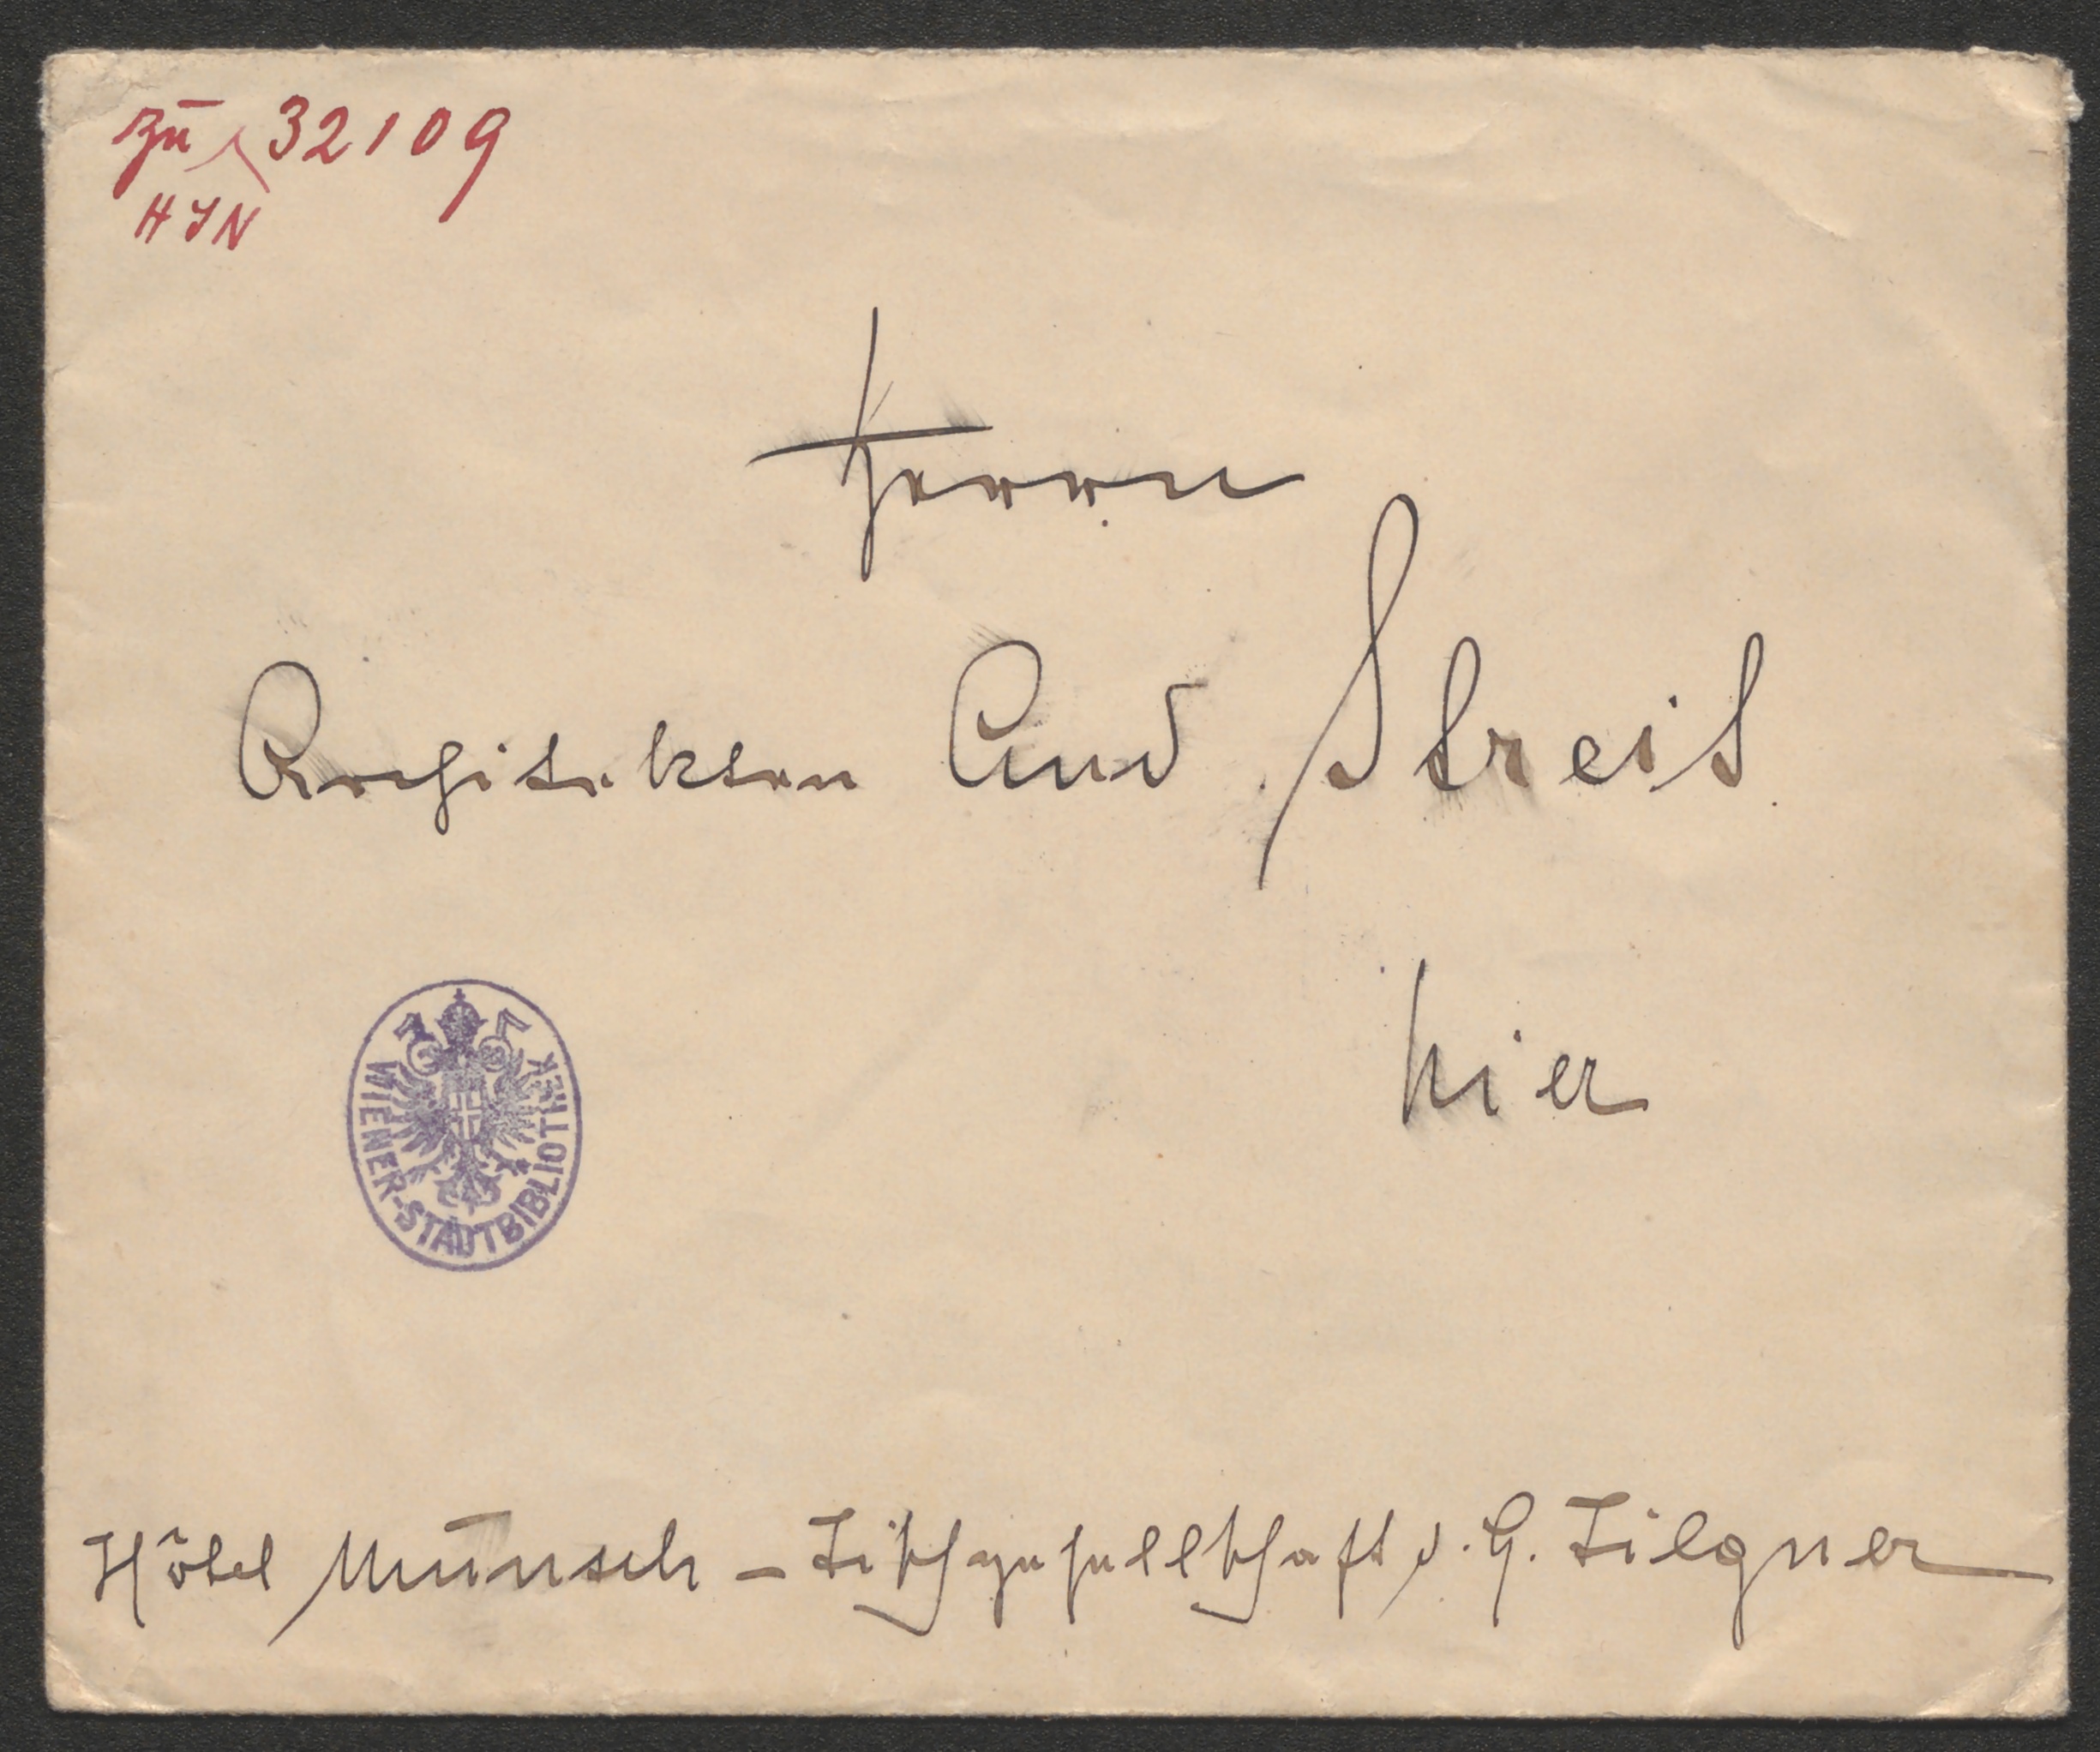 zu 32109
HJN
Herrn
Architekten And. Streit.
hier
WIENER-STADTBIBLIOTHEK
Hôtel Munsch – Tischgesellschaft d. H. Tilgner